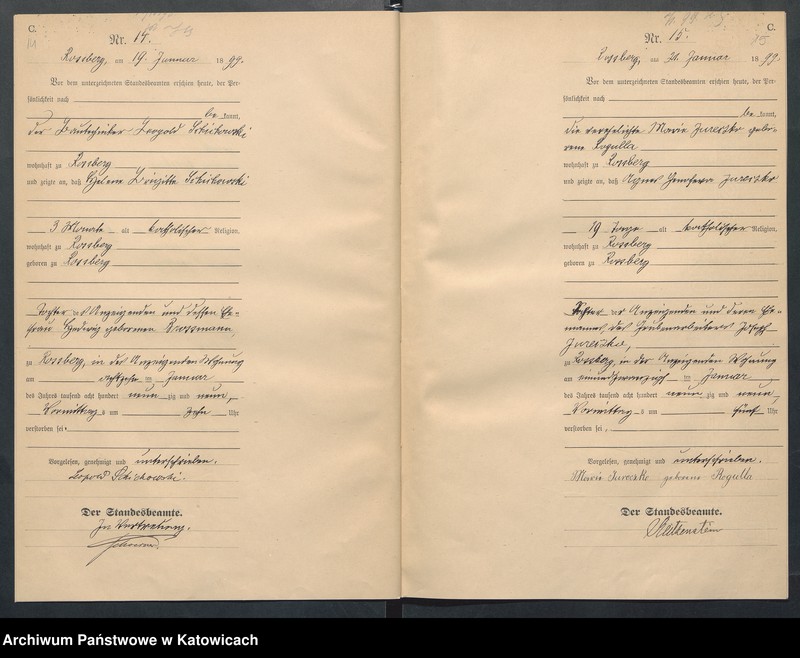 C.
14
Nr. 14.
Rossberg, am 19. Januar 1899.
Vor dem unterzeichneten Standesbeamten erschien heute, der Per-
sönlichkeit nach
be kannt,
der Bautechniker Leopold Schikowski
wohnhaft zu Rossberg
und zeigte an, daß Helene Brigitte Schikowski
3 Monate alt katholischer Religion,
wohnhaft zu Rossberg
geboren zu Rossberg
Tochter des Anzeigenden und dessen Ehe-
frau Hedwig geborenen Grossmann,
zu Rossberg, in des Anzeigenden Wohnung
am achtzehn ten Januar
des Jahres tausend acht hundert neun zig und neun,
Vormittag s um zehn Uhr
verstorben sei.
Vorgelesen, genehmigt und unterschrieben.
Leopold Schikowski.
Der Standesbeamte.
In Vertretung.
C.
15
Nr. 15.
Rossberg, am 21. Januar 1899.
Vor dem unterzeichneten Standesbeamten erschien heute, der Per-
sönlichkeit nach
be kannt,
die verehelichte Marie Jureczko gebo-
rene Rogulla
wohnhaft zu Rossberg
und zeigte an, daß Agnes Genofeva Jureczko
19 Tage alt katholischer Religion,
wohnhaft zu Rossberg
geboren zu Rossberg
Tochter der Anzeigenden und deren Ehe-
mannes, des Grubenarbeiters Joseph
Jureczko,
zu Rossberg, in der Anzeigenden Wohnung
am einundzwanzigs ten Januar
des Jahres tausend acht hundert neun zig und neun,
Vormittag s um fünf Uhr
verstorben sei.
Vorgelesen, genehmigt und unterschrieben.
Marie Jureczko geborene Rogulla
Der Standesbeamte.
Archiwum Państwowe w Katowicach